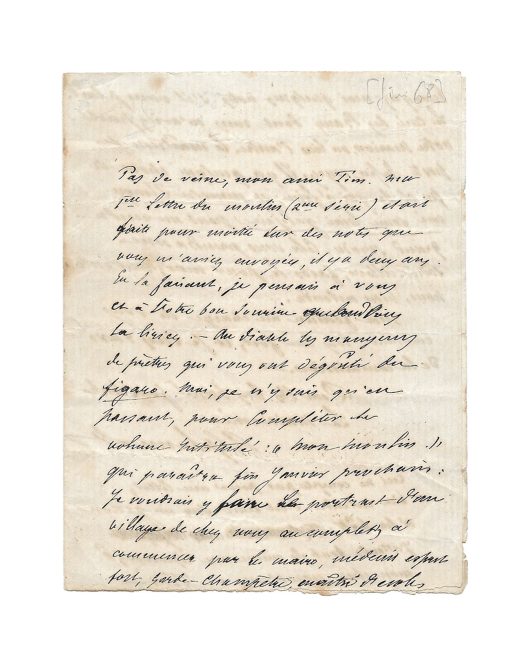 [fin 68]
Pas de veine, mon ami Tim. ma
1ère lettre du moulin (2me série) était
faite pour moitié sur des notes que
vous m'aviez envoyées, il y a deux ans.
En la faisant, je pensais à vous
et à votre bon sourire quand vous
la liriez. — Au diable les mangeurs
de prêtres qui vous ont dégoûté du
figaro. Moi, je n'y suis qu'en
passant, pour compléter le
volume intitulé : « Mon moulin. »
qui paraîtra fin Janvier prochain :
Je voudrais y faire le portrait d'un
village de chez nous au complet, à
commencer par le maire, médecin esprit
fort, garde-champêtre, maître d'école,